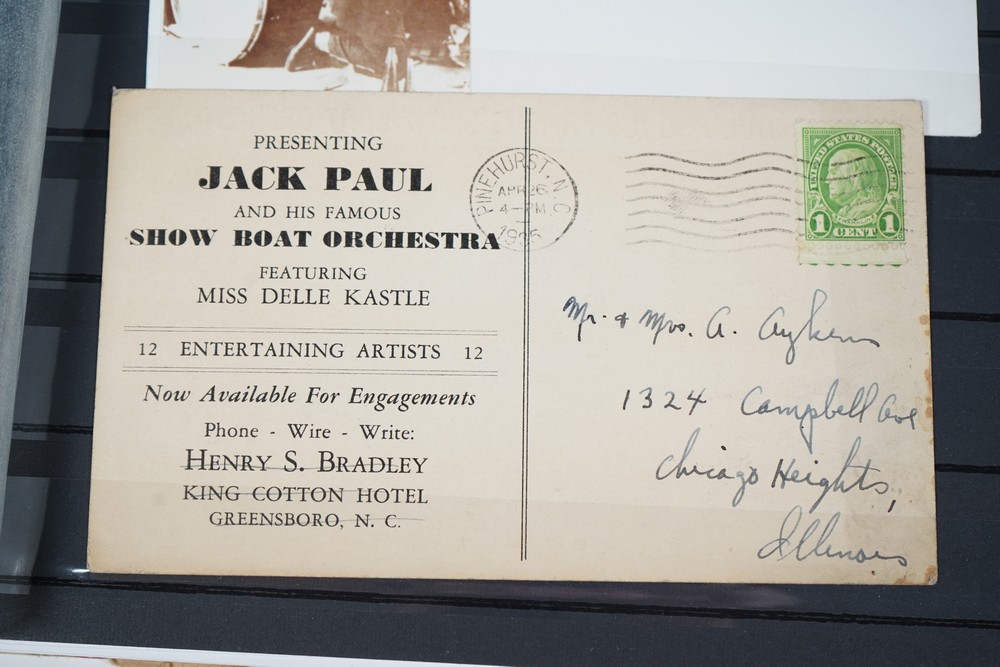 PRESENTING
JACK PAUL
AND HIS FAMOUS
SHOW BOAT ORCHESTRA
FEATURING
MISS DELLE KASTLE
12 ENTERTAINING ARTISTS 12
Now Available For Engagements
Phone - Wire - Write:
HENRY S. BRADLEY
KING COTTON HOTEL
GREENSBORO, N. C.
PINEHURST. N.C.
APR 26
4-PM
UNITED STATES POSTAGE
1 CENT 1
Mr. & Mrs. A.
1324 Campbell Ave
Chicago Heights,
Illinois